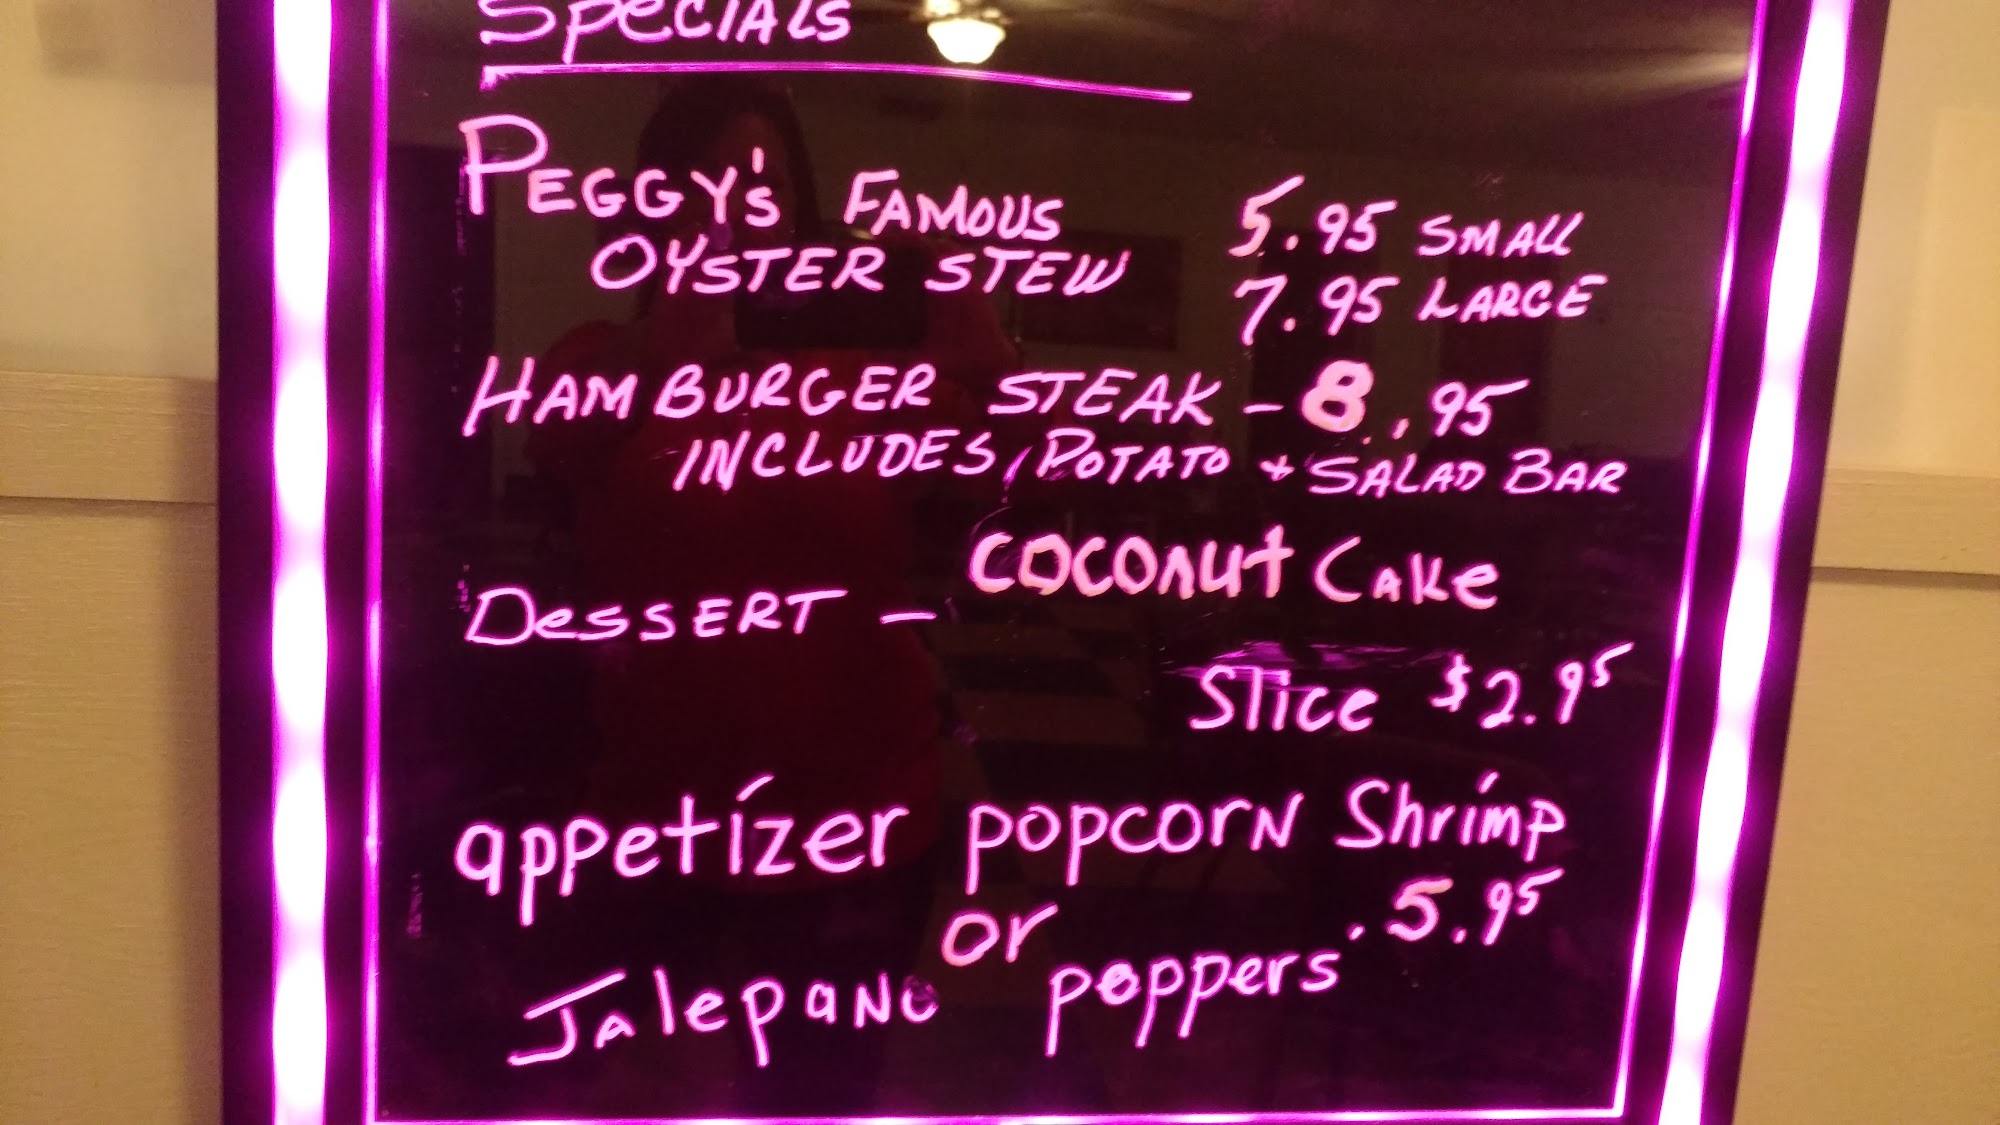 Specials
PEGGY's FAMOUS 5.95 SMALL
OYSTER STEW 7.95 LARGE
HAMBURGER STEAK - 8.95
INCLUDES, POTATO + SALAD BAR
DESSERT - COCONUT CAKE
Slice $2.95
appetizer popcorn Shrimp
or .5.95
Jalepano poppers